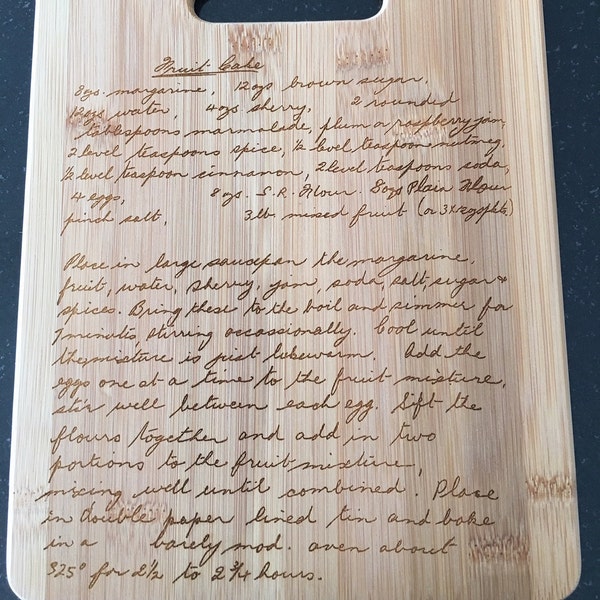 Fruit Cake
8ozs. margarine, 12ozs brown sugar,
12ozs water, 4ozs sherry, 2 rounded
tablespoons marmalade, plum or raspberry jam,
2 level teaspoons spice, ½ level teaspoon nutmeg,
½ level teaspoon cinnamon, 2 level teaspoons soda,
4 eggs, 8ozs. S.R. Flour. 8ozs Plain Flour
pinch salt, 3lb mixed fruit (or 3
Place in large saucepan the margarine,
fruit, water, sherry, jam, soda, salt, sugar &
spices. Bring these to the boil and simmer for
7 minutes, stirring occassionally. Cool until
the mixture is just lukewarm. Add the
eggs one at a time to the fruit mixture,
stir well between each egg. Sift the
flours together and add in two
portions to the fruit mixture,
mixing well until combined. Place
in double paper lined tin and bake
in a barely mod. oven about
325° for 2½ to 2¾ hours.